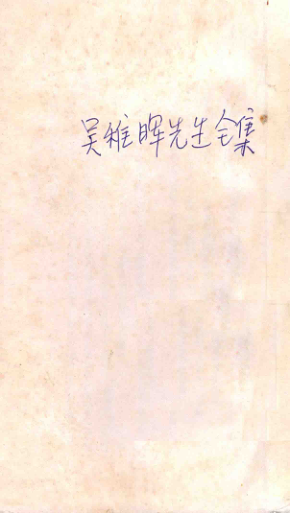 吴稚晖先生全集